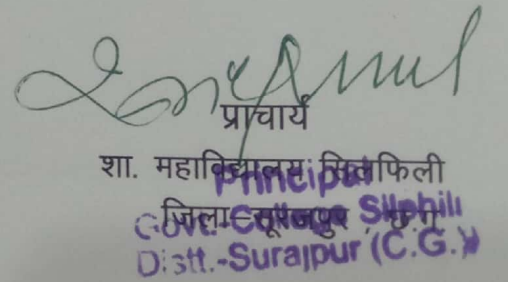 प्राचार्य
शा. महाविद्यालय सिलफिली
जिला-सूरजपुर, छ.ग.
Principal
Govt. College Silphili
Distt.-Surajpur (C.G.)